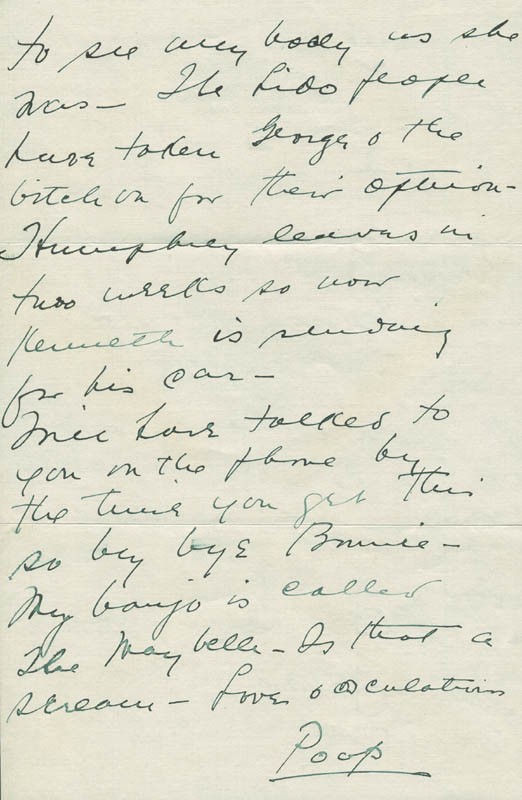 to see any body as she
was— The Lido people
have taken George & the
bitch on for their option—
Humphrey leaves in
two weeks so now
Kenneth is sending
for his car—
Will have talked to
you on the phone by
the time you get this
so bye bye Bonnie—
My banjo is called
The May belle— Is that a
scream— Love & osculations
Poop